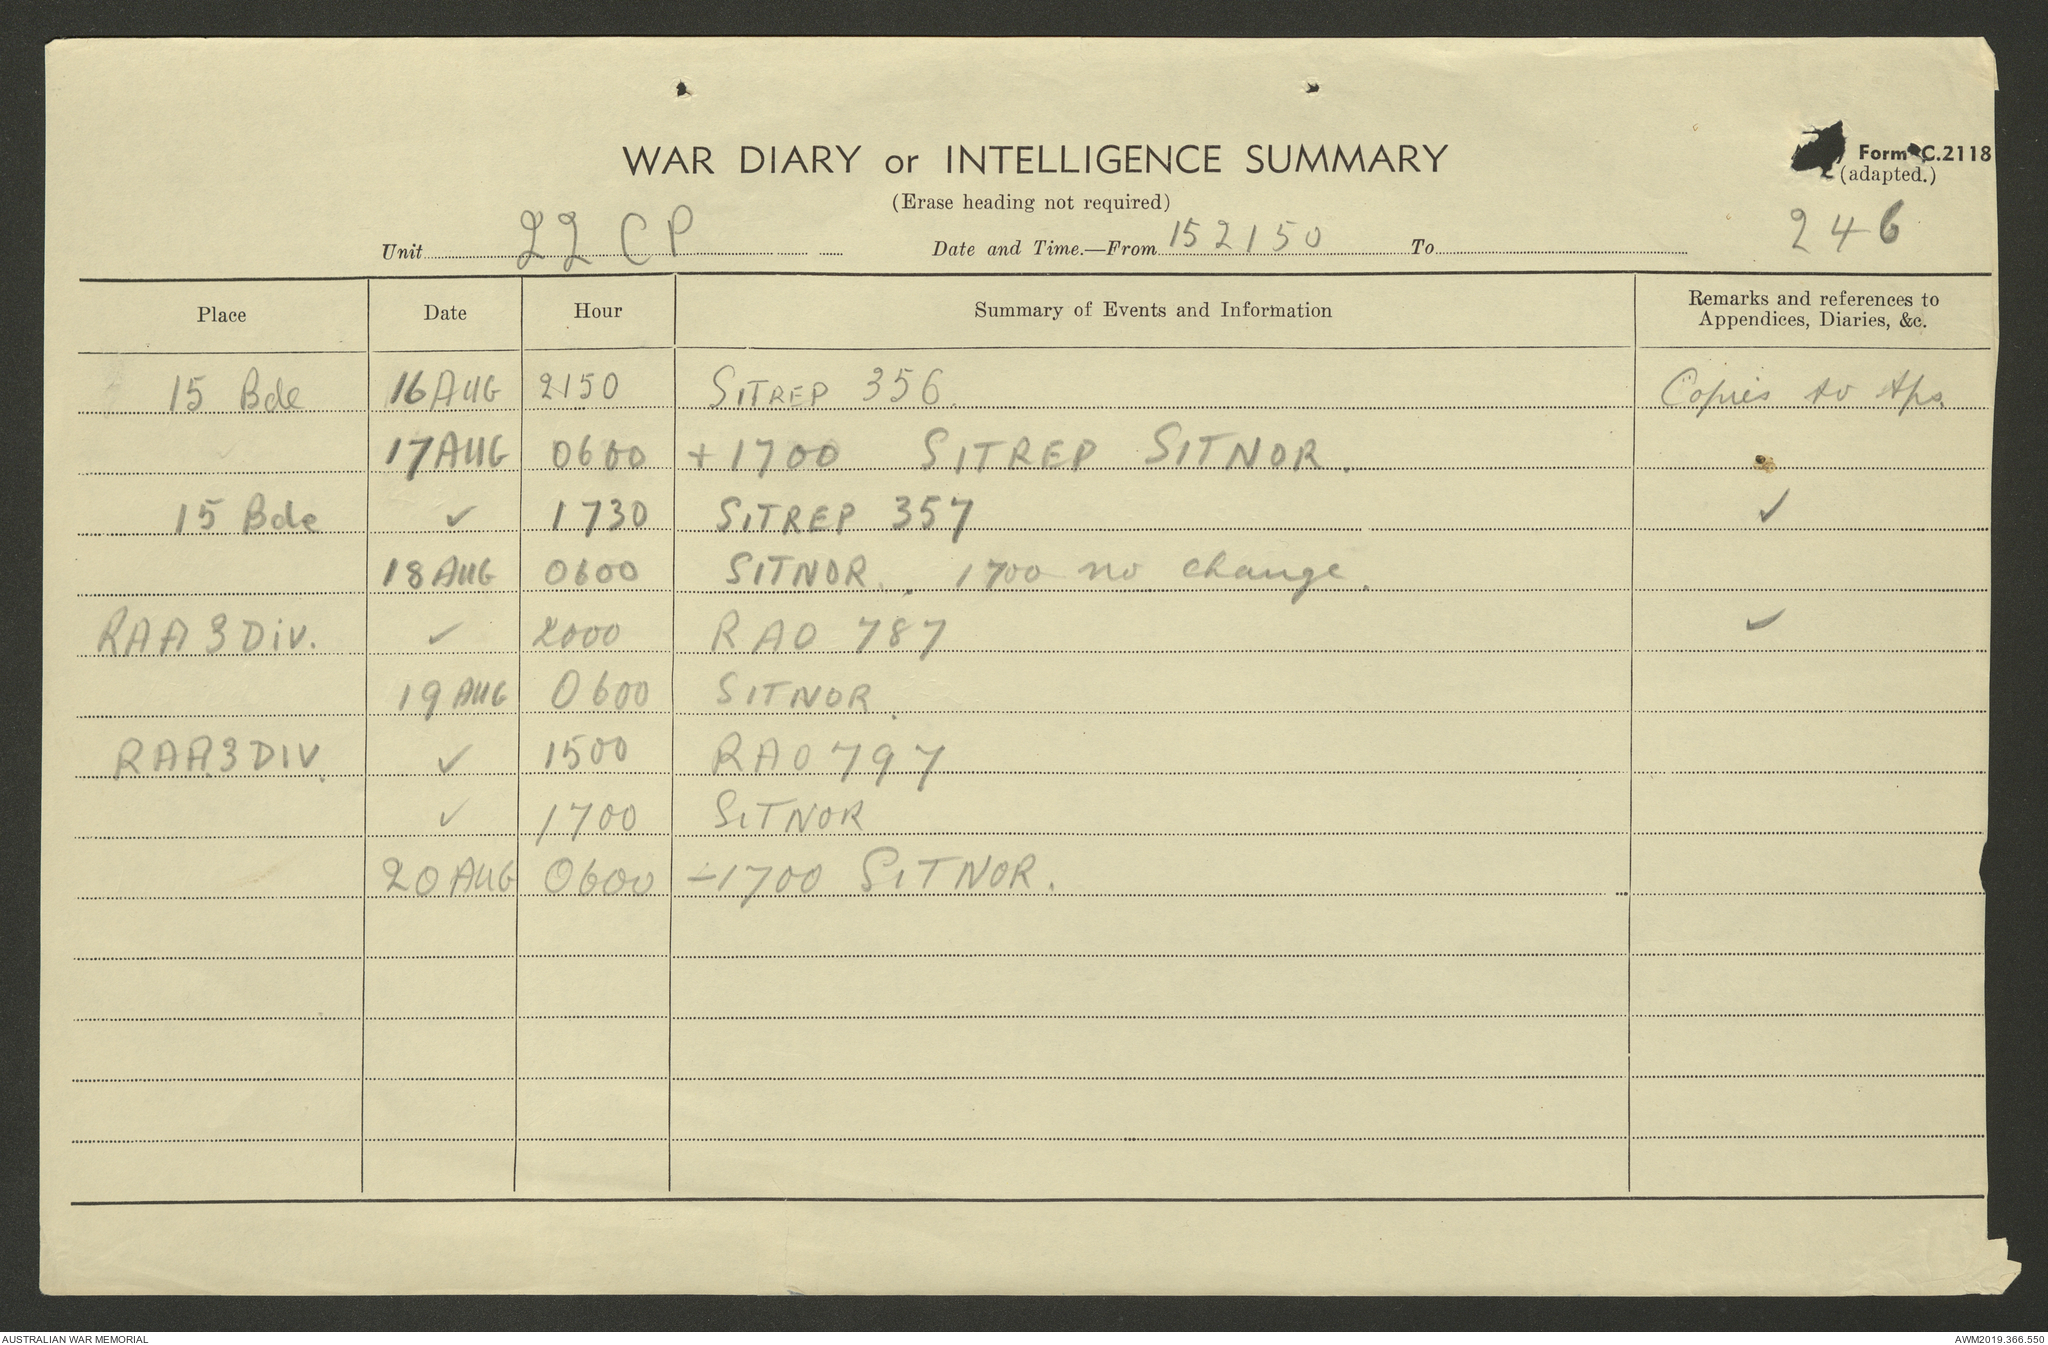 WAR DIARY or INTELLIGENCE SUMMARY
Form C.2118
(adapted.)
(Erase heading not required)
246
Unit 22 CP Date and Time.—From 152150 To
Place Date Hour Summary of Events and Information Remarks and references to Appendices, Diaries, &c.
15 Bde 16 AUG 2150 SITREP 356. Copies to
17 AUG 0600 + 1700 SITREP SITNOR.
15 Bde ✓ 1730 SITREP 357 ✓
18 AUG 0600 SITNOR. 1700 no change.
RAA 3 Div. ✓ 2000 RAO 787 ✓
19 AUG 0600 SITNOR.
RAA.3 DIV. ✓ 1500 RAO 797
✓ 1700 SITNOR
20 AUG 0600 -1700 SITNOR.
AUSTRALIAN WAR MEMORIAL
AWM2019.366.550